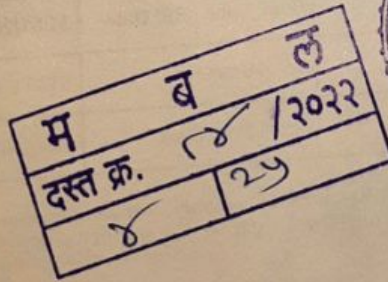 म ब ल
दस्त क्र. १४ /२०२२
४ २५